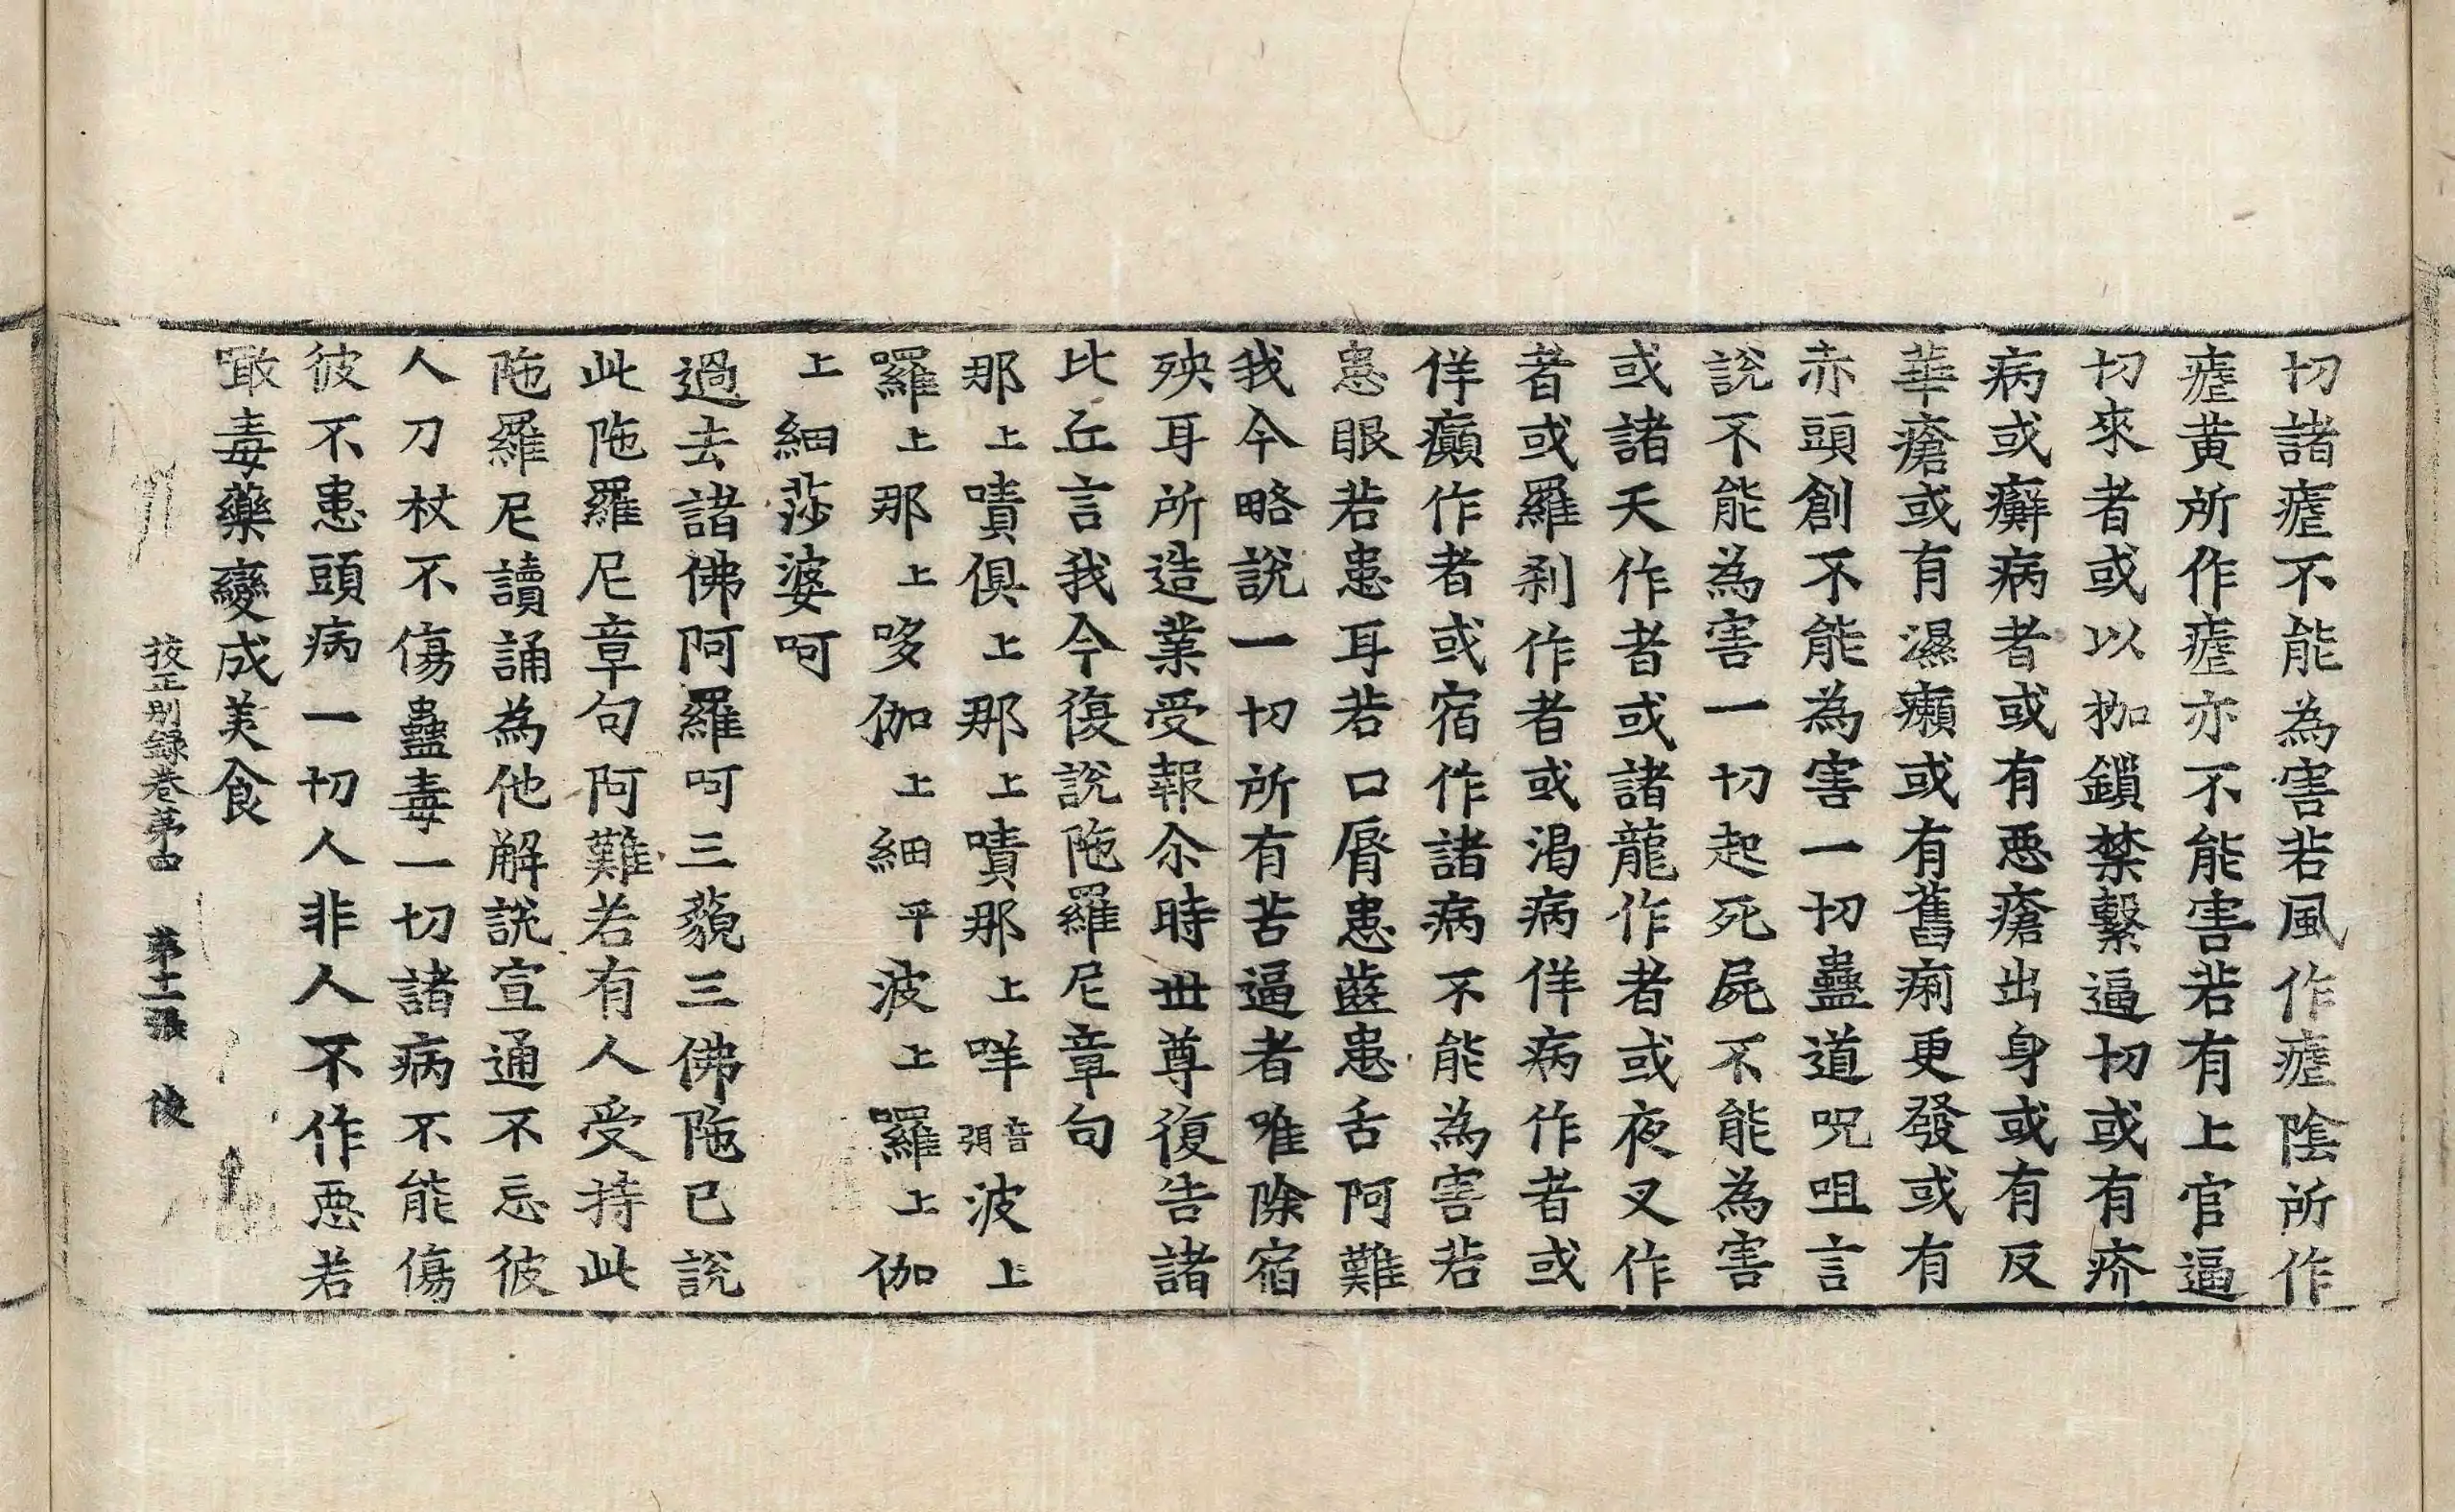 切諸瘧不能為害若風作瘧陰所作
瘧黄所作瘧亦不能害若有上官逼
切來者或以枷鎖禁繫逼切或有疥
病或癬病者或有惡瘡出身或有反
華瘡或有濕癩或有舊痢更發或有
赤頭創不能為害一切蠱道呪咀言
說不能為害一切起死屍不能為害
或諸天作者或諸龍作者或夜叉作
者或羅刹作者或渴病佯病作者或
佯癲作者或宿作諸病不能為害若
患眼若患耳若口脣患齒患舌阿難
我今略說一切所有苦逼者唯除宿
殃耳所造業受報尒時世尊復告諸
比丘言我今復說陁羅尼章句
那上嘖俱上那上嘖那上咩音弭波上
囉上那上哆伽上細平波上囉上伽
上細莎婆呵
過去諸佛阿羅呵三藐三佛陁已說
此陁羅尼章句阿難若有人受持此
陁羅尼讀誦為他解說宣通不忘彼
人刀杖不傷蠱毒一切諸病不能傷
彼不患頭病一切人非人不作惡若
噉毒藥變成美食
挍正別錄卷第四 第十二張 俊